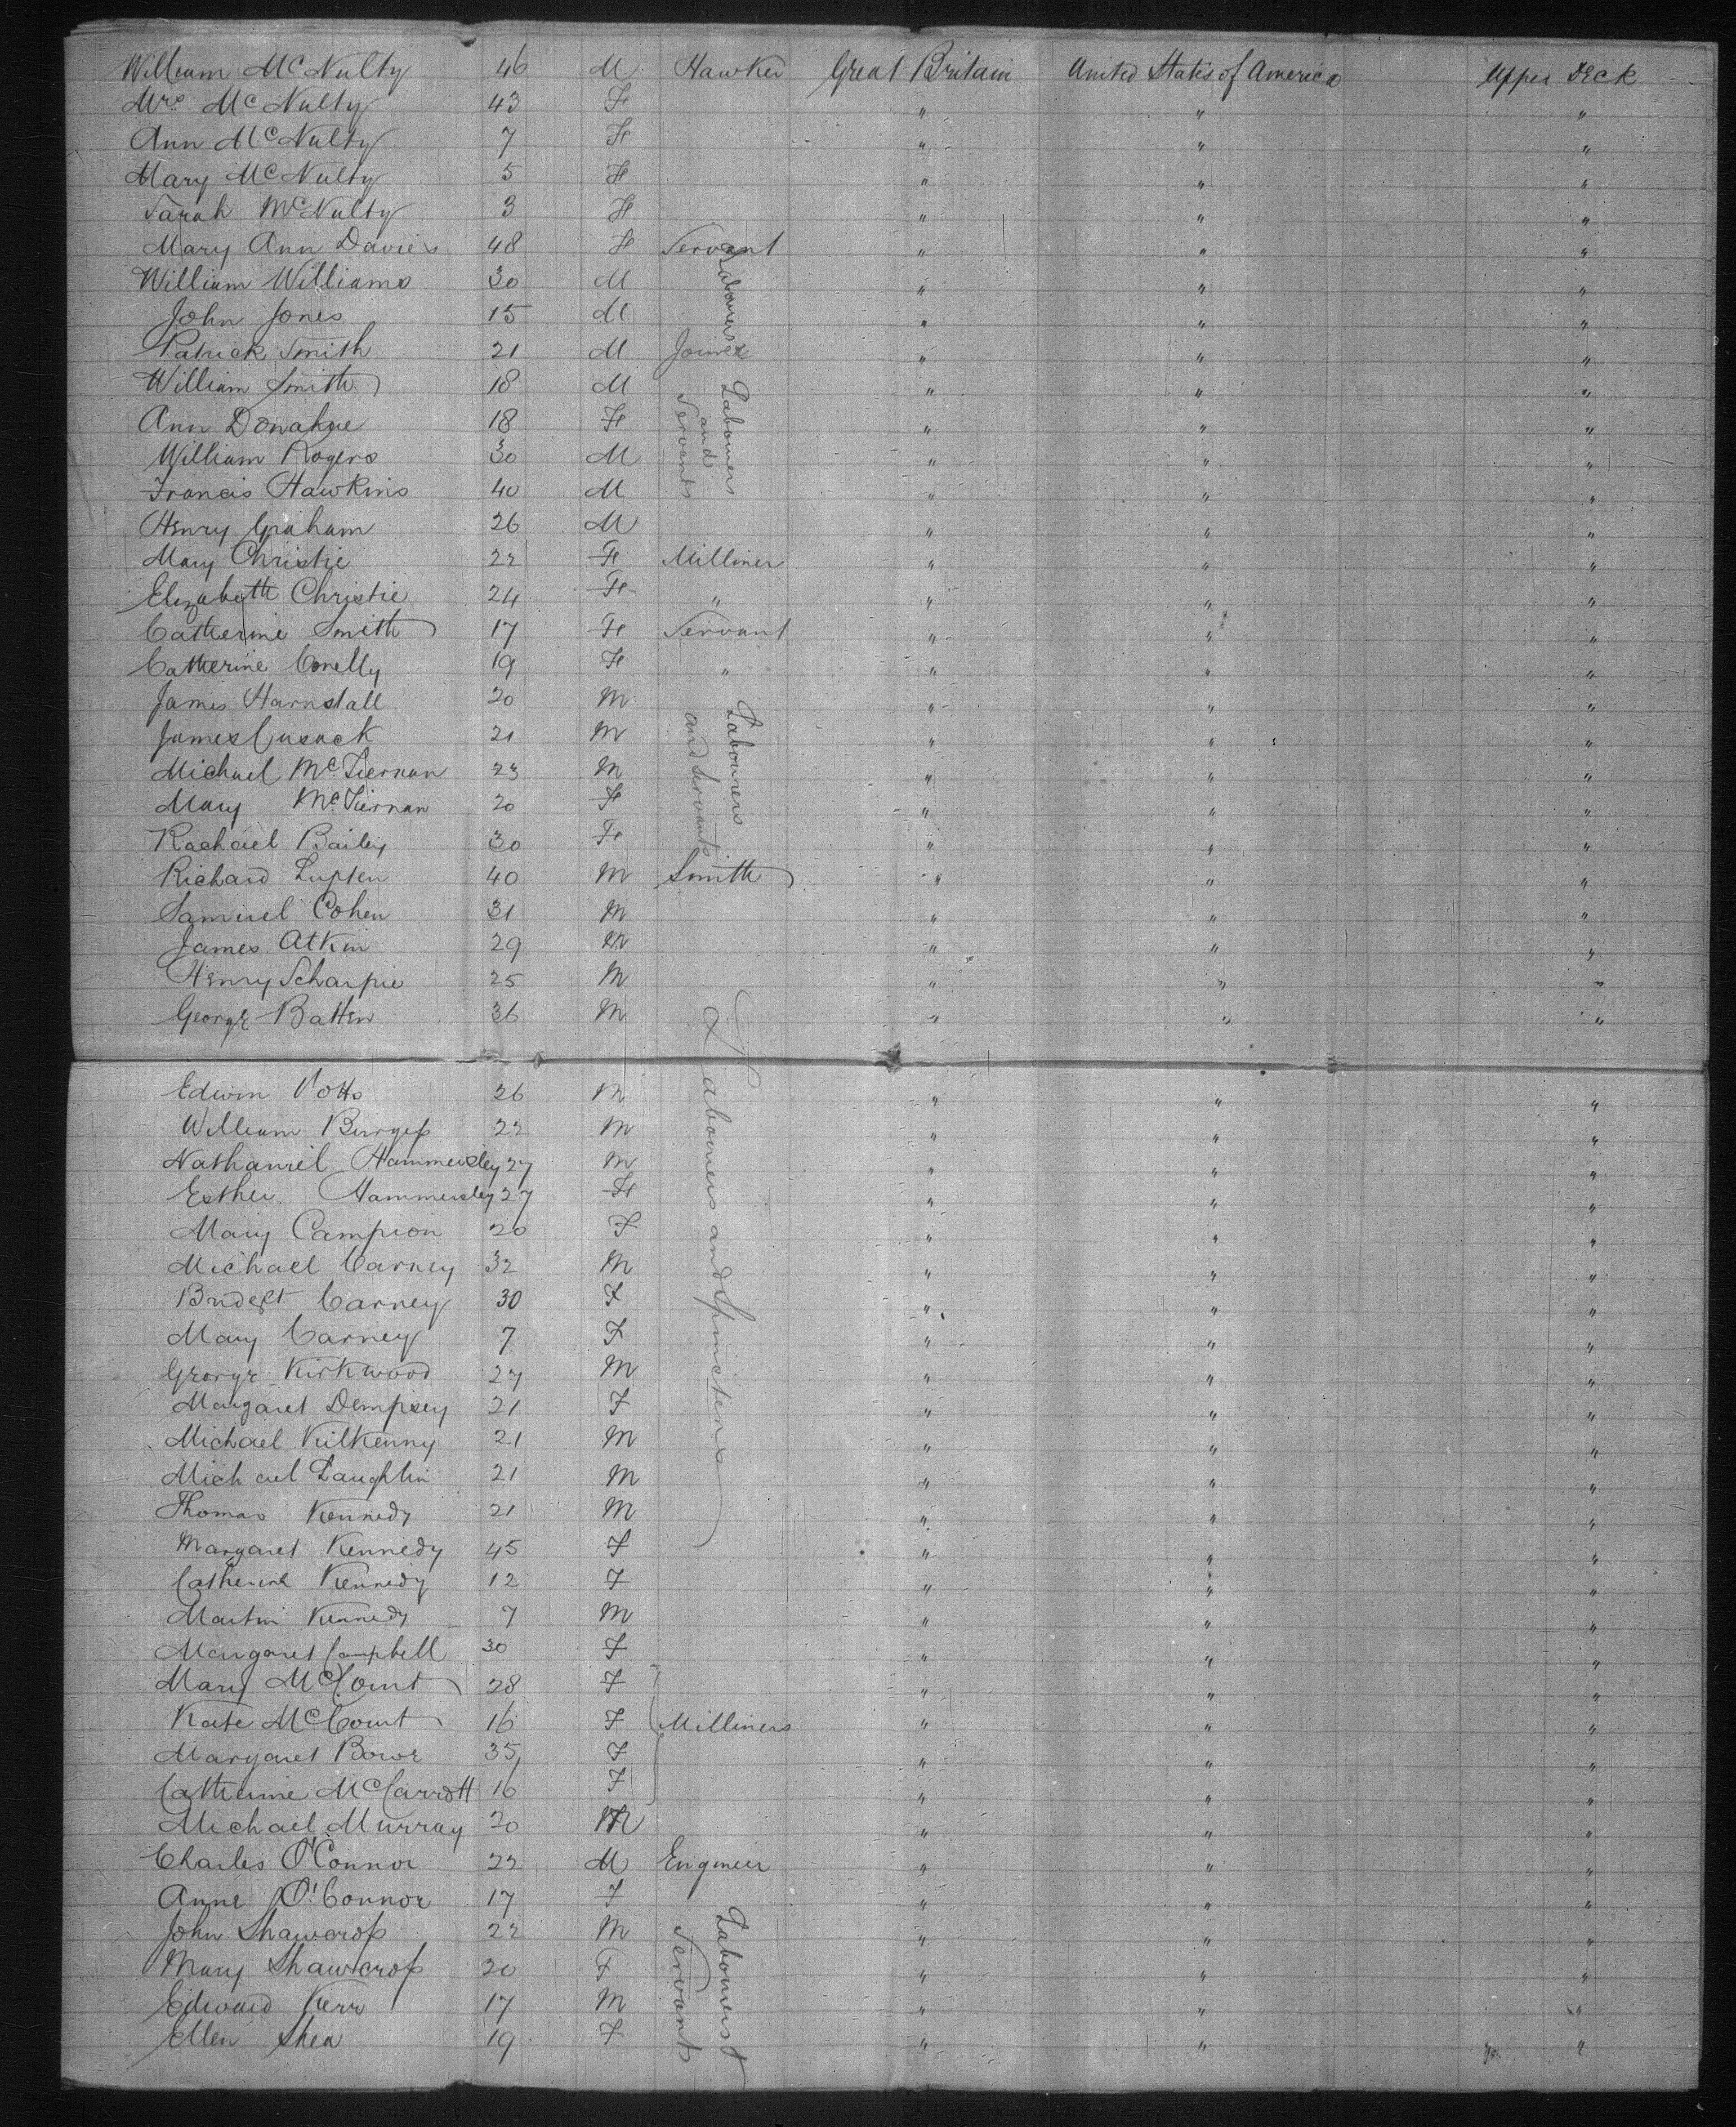 William McNulty 46 M Hawker Great Britain United States of America Upper Deck
Mrs McNulty 43 F " " "
Ann McNulty 7 F " " "
Mary McNulty 5 F " " "
Sarah McNulty 3 F " " "
Mary Ann Davies 48 F Servant " " "
William Williams 30 M Labourers " " "
John Jones 15 M " " "
Patrick Smith 21 M Joiner " " "
William Smith 18 M Labourers and Servants " " "
Ann Donahue 18 F " " "
William Rogers 30 M " " "
Francis Hawkins 40 M " " "
Henry Graham 26 M " " "
Mary Christie 22 F Milliner " " "
Elizabeth Christie 24 F " " " "
Catherine Smith 17 F Servant " " "
Catherine Conelly 19 F " " " "
James Harnstall 20 M Labourers and Servants " " "
James Cusack 21 M " " "
Michael McTiernan 23 M " " "
Mary McTiernan 20 F " " "
Rachael Bailey 30 F " " "
Richard Lupten 40 M Smith " " "
Samuel Cohen 31 M " " "
James Atkin 29 M " " "
Henry Scharpie 25 M " " "
George Batten 36 M Labourers and Spincters " " "
Edwin Potts 26 M " " "
William Burgess 22 M " " "
Nathaniel Hammersley 27 M " " "
Esther Hammersley 27 F " " "
Mary Campion 20 F " " "
Michael Carney 32 M " " "
Bridget Carney 30 F " " "
Mary Carney 7 F " " "
George Kirkwood 27 M " " "
Margaret Dempsey 21 F " " "
Michael Kilkenny 21 M " " "
Michael Laughlin 21 M " " "
Thomas Kennedy 21 M " " "
Margaret Kennedy 45 F " " "
Catherine Kennedy 12 F " " "
Martin Kennedy 7 M " " "
Margaret Campbell 30 F " " "
Mary McCourt 28 F " " "
Kate McCourt 16 F Milliners " " "
Margaret Bowe 35 F " " "
Catherine McCarrott 16 F " " "
Michael Murray 20 M " " "
Charles O'Connor 22 M Engineer " " "
Anne O'Connor 17 F " " "
John Shawcross 22 M Labourers & Servants " " "
Mary Shawcross 20 F " " "
Edward Kerr 17 M " " "
Ellen Shea 19 F " " "